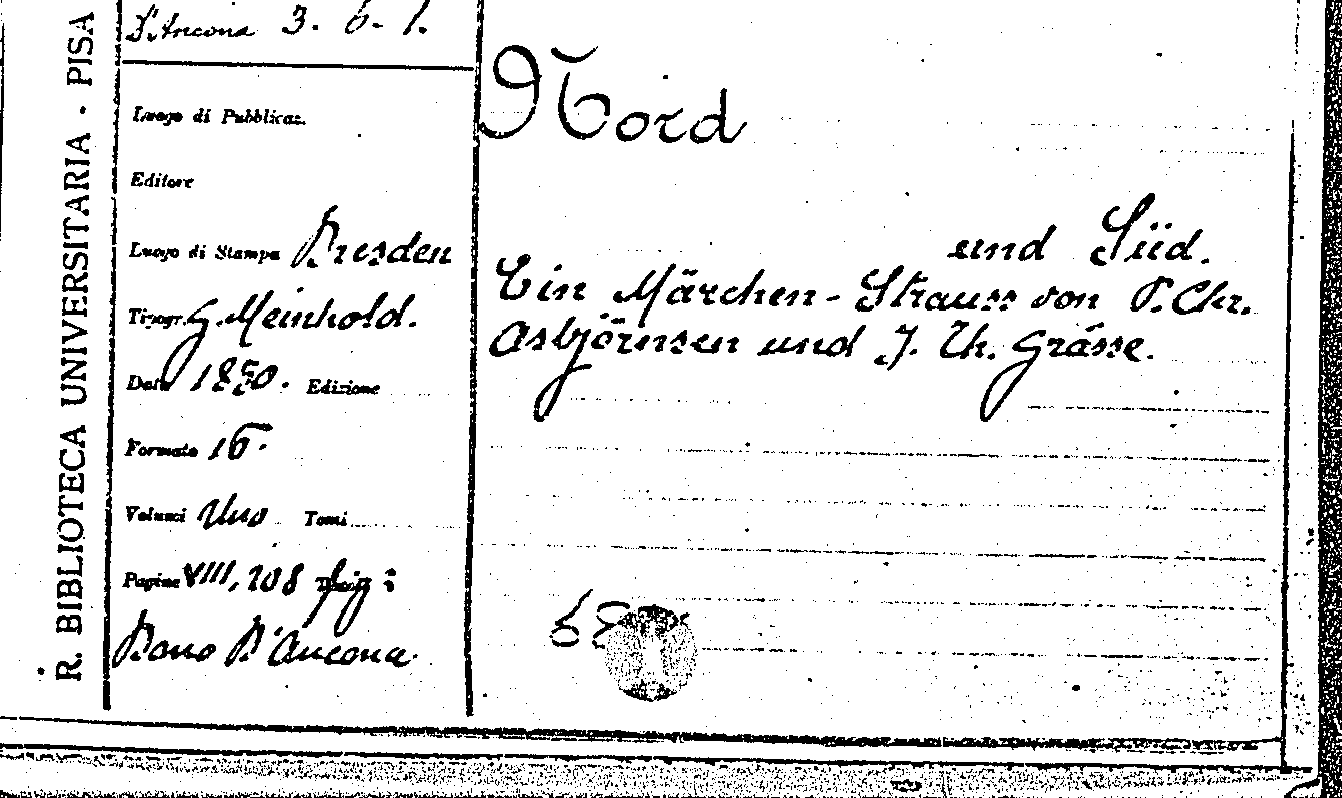 R. BIBLIOTECA UNIVERSITARIA · PISA
D'Ancona 3. 6. 1.
Luogo di Pubblicaz.
Editore
Luogo di Stampa Dresden
Tipogr. G. Meinhold.
Data 1850. Edizione
Formato 16°.
Volumi Uno Tomi
Pagine VIII, 108
Dono D'Ancona
Nord
und Süd.
Ein Märchen-Strauss von P. Chr.
Asbjörnsen und J. Th. Grässe.